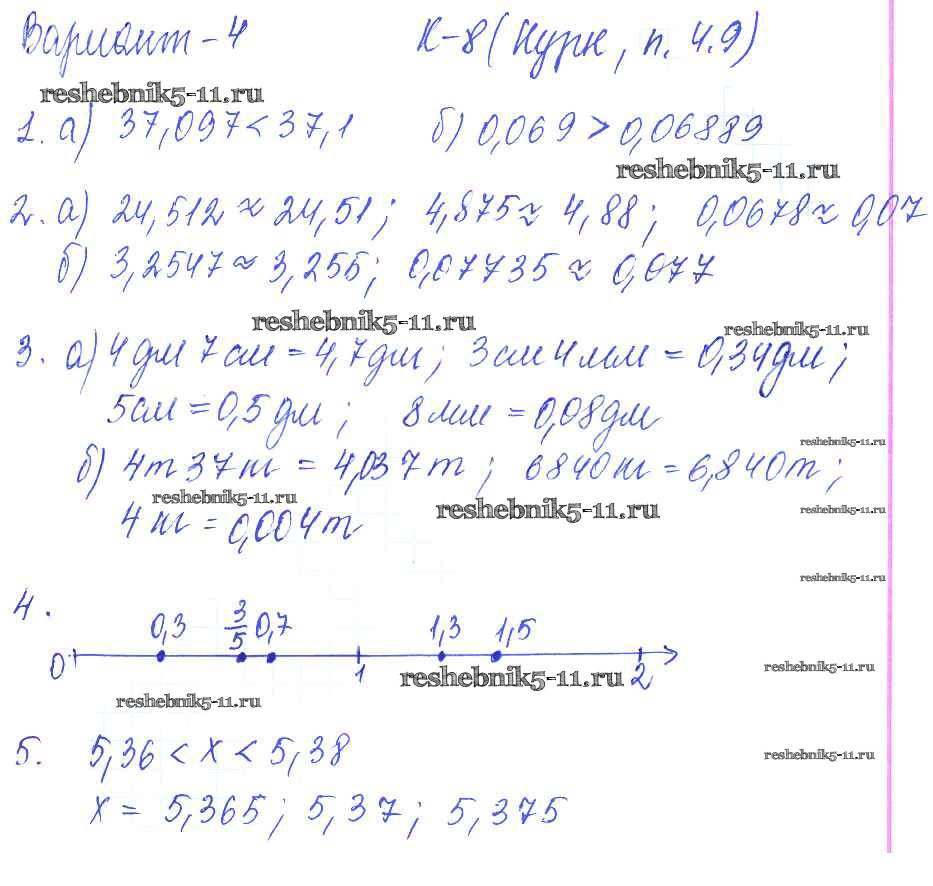 Вариант-4 К-8 (Нурк, п. 4.9)
reshebnik5-11.ru
1. а) 37,097 < 37,1 б) 0,069 > 0,06889
reshebnik5-11.ru
2. а) 24,512 ≈ 24,51; 4,875 ≈ 4,88; 0,0678 ≈ 0,07
б) 3,2547 ≈ 3,255; 0,07735 ≈ 0,077
reshebnik5-11.ru
reshebnik5-11.ru
3. а) 4 дм 7 см = 4,7 дм; 3 см 4 мм = 0,34 дм;
5 см = 0,5 дм; 8 мм = 0,08 дм
reshebnik5-11.ru
б) 4т 37кг = 4,037т; 6840кг = 6,840т;
reshebnik5-11.ru
reshebnik5-11.ru
reshebnik5-11.ru
4 кг = 0,004т
reshebnik5-11.ru
4.
0,3 3/5 0,7 1,3 1,5
0 1 2
reshebnik5-11.ru
reshebnik5-11.ru
reshebnik5-11.ru
5. 5,36 < x < 5,38
reshebnik5-11.ru
x = 5,365; 5,37; 5,375